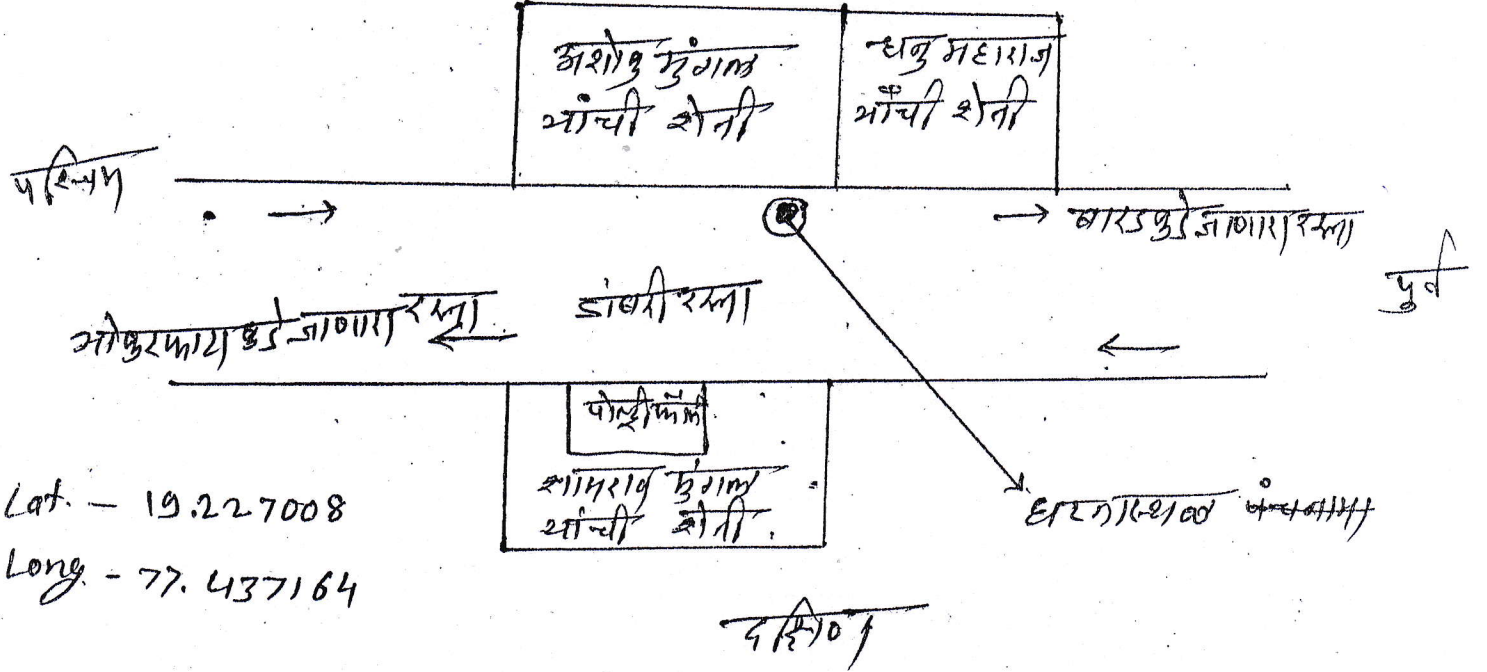 अशोक मुंगल
यांची शेती
धनु महाराज
यांची शेती
पश्चिम
बारडकडे जाणारा रस्ता
पुर्व
डांबरी रस्ता
भोकरफाटा कडे जाणारा रस्ता
पोल्ट्री फॉर्म
शामराव मुंगल
यांची शेती
घटनास्थळ पंचनामा
Lat. - 19.227008
Long - 77.437164
दक्षिण